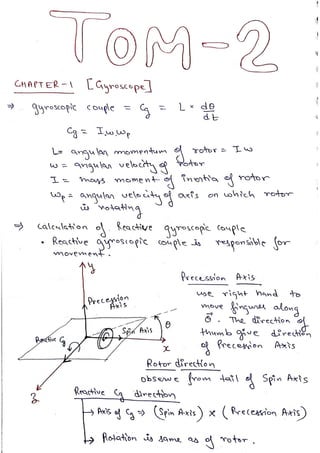 TOM-2
CHAPTER-1 [Gyroscope]
⇒ gyroscopic couple = Cg = L · dθ/dt
Cg = I.ω.ωp
L = angular momentum of rotor = Iω
ω = angular velocity of rotor
I = mass moment of inertia of rotor
ωp = angular velocity of axis on which rotor
is rotating
⇒ calculation of Reactive gyroscopic couple
• Reactive Gyroscopic couple is responsible for
movement.
y
Precession Axis
Precession
Axis
use right hand to
move fingures along
θ. The direction of
thumb give direction
of Precession Axis
θ
Spin Axis
Reactive Cg
x
z
Rotor direction
observe from tail of Spin Axis
Reactive Cg direction
→ Axis of Cg ⇒ (Spin Axis) × (Precession Axis)
→ Rotation is same as of rotor.